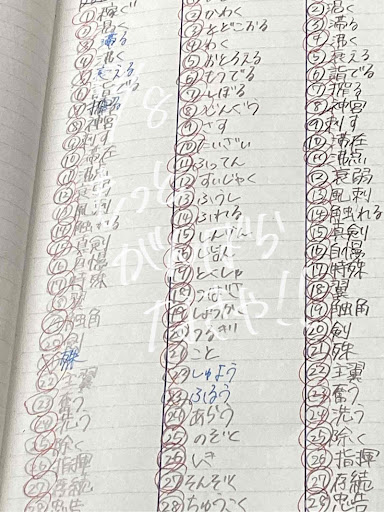 ①稼ぐ
②渇く
③滞る
④沸く
⑤衰える
⑥詣でる
⑦搾る
⑧神宮
⑨刺す
⑩滞在
⑪沸点
⑫衰弱
⑬風刺
⑭触れる
⑮真剣
⑯自慢
⑰特殊
⑱翼
⑲触角
⑳剣
㉑殊
㉒主翼
㉓奮う
㉔洗う
㉕除く
㉖指揮
㉗存続
㉘忠告
②かわく
③とどこおる
④わく
⑤おとろえる
⑥もうでる
⑦しぼる
⑧じんぐう
⑨さす
⑩たいざい
⑪ふってん
⑫すいじゃく
⑬ふうし
⑭ふれる
⑮しんけん
⑯じまん
⑰とくしゅ
⑱つばさ
⑲しょっかく
⑳つるぎ
㉑こと
㉒しゅよう
㉓ふるう
㉔あらう
㉕のぞく
㉖しき
㉗そんぞく
㉘ちゅうこく
②渇く
③滞る
④沸く
⑤衰える
⑥詣でる
⑦搾る
⑧神宮
⑨刺す
⑩滞在
⑪沸点
⑫衰弱
⑬風刺
⑭触れる
⑮真剣
⑯自慢
⑰特殊
⑱翼
⑲触角
⑳剣
㉑殊
㉒主翼
㉓奮う
㉔洗う
㉕除く
㉖指揮
㉗存続
㉘忠告
もっと
がんばら
なきゃ!!